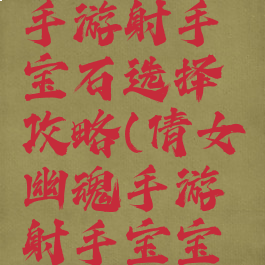 手游射手
宝石选择
攻略(倩女
幽魂手游
射手宝宝